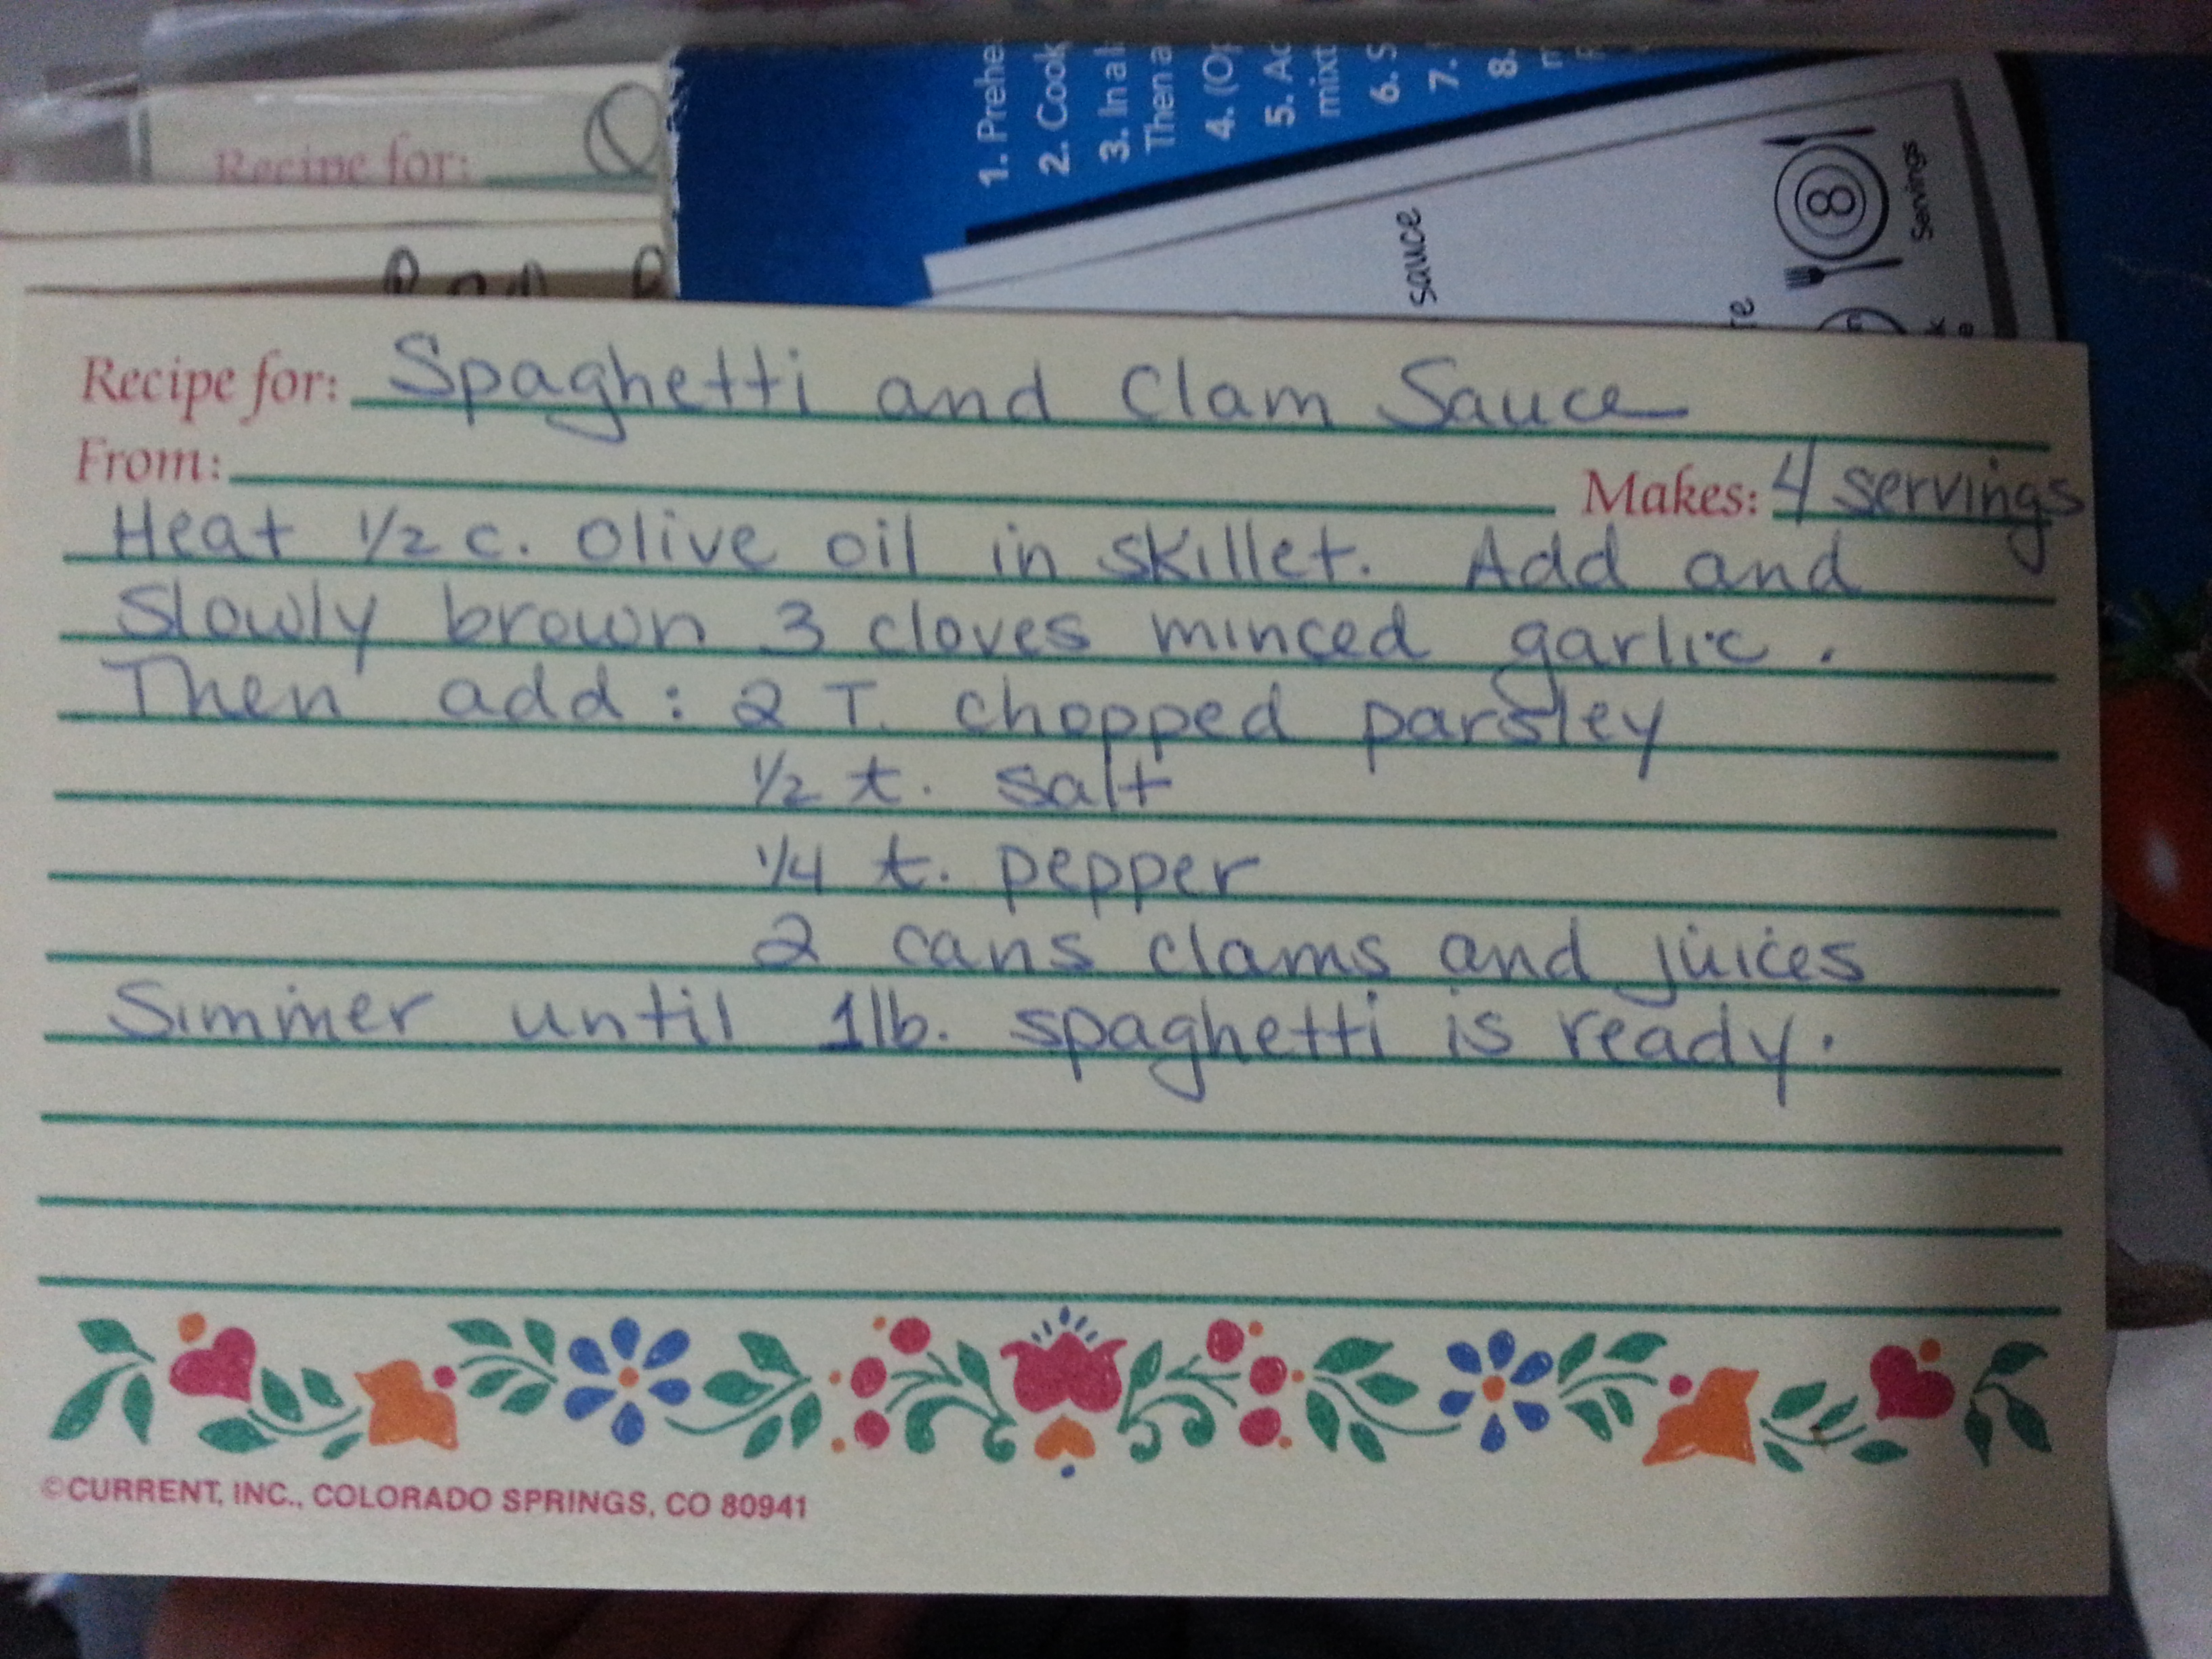 Recipe for:
1. Prehe
2. Cook
3. In a l
Then a
4. (Op
5. Ac
mixt
6. S
7.
8.
sauce
8
Servings
Recipe for: Spaghetti and Clam Sauce
From:
Makes: 4 servings
Heat 1/2 c. olive oil in skillet. Add and
slowly brown 3 cloves minced garlic.
Then add: 2 T. chopped parsley
1/2 t. salt
1/4 t. pepper
2 cans clams and juices
Simmer until 1 lb. spaghetti is ready.
©CURRENT, INC., COLORADO SPRINGS, CO 80941